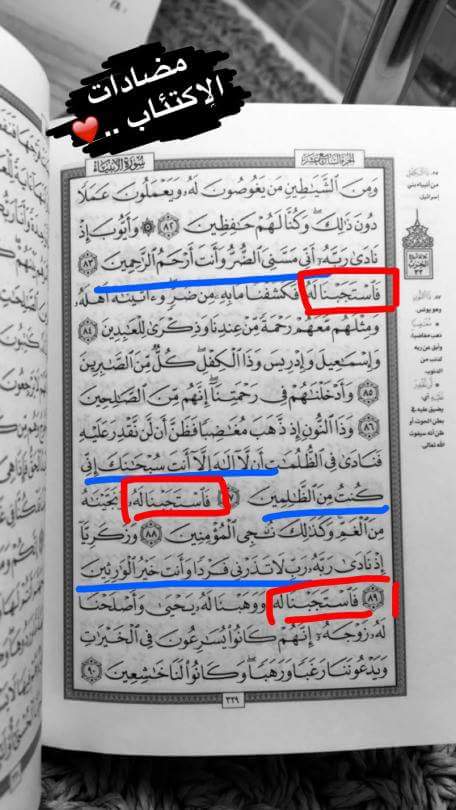 مضادات
الإكتئاب .. ❤️
سُورَةُ الأَنبِيَاءِ
الجُزْءُ السَّابِعَ عَشَرَ
وَمِنَ ٱلشَّيَٰطِينِ مَن يَغُوصُونَ لَهُۥ وَيَعْمَلُونَ عَمَلًا
دُونَ ذَٰلِكَ ۖ وَكُنَّا لَهُمْ حَٰفِظِينَ ٨٢ ۞ وَأَيُّوبَ إِذْ
نَادَىٰ رَبَّهُۥٓ أَنِّى مَسَّنِىَ ٱلضُّرُّ وَأَنتَ أَرْحَمُ ٱلرَّٰحِمِينَ ٨٣
فَٱسْتَجَبْنَا لَهُۥ فَكَشَفْنَا مَا بِهِۦ مِن ضُرٍّ ۖ وَءَاتَيْنَٰهُ أَهْلَهُۥ
وَمِثْلَهُم مَّعَهُمْ رَحْمَةً مِّنْ عِندِنَا وَذِكْرَىٰ لِلْعَٰبِدِينَ ٨٤
وَإِسْمَٰعِيلَ وَإِدْرِيسَ وَذَا ٱلْكِفْلِ ۖ كُلٌّ مِّنَ ٱلصَّٰبِرِينَ
٨٥ وَأَدْخَلْنَٰهُمْ فِى رَحْمَتِنَآ ۖ إِنَّهُم مِّنَ ٱلصَّٰلِحِينَ
٨٦ وَذَا ٱلنُّونِ إِذ ذَّهَبَ مُغَٰضِبًا فَظَنَّ أَن لَّن نَّقْدِرَ عَلَيْهِ
فَنَادَىٰ فِى ٱلظُّلُمَٰتِ أَن لَّآ إِلَٰهَ إِلَّآ أَنتَ سُبْحَٰنَكَ إِنِّى
كُنتُ مِنَ ٱلظَّٰلِمِينَ ٨٧ فَٱسْتَجَبْنَا لَهُۥ وَنَجَّيْنَٰهُ
مِنَ ٱلْغَمِّ ۚ وَكَذَٰلِكَ نُۨجِى ٱلْمُؤْمِنِينَ ٨٨ وَزَكَرِيَّآ
إِذْ نَادَىٰ رَبَّهُۥ رَبِّ لَا تَذَرْنِى فَرْدًا وَأَنتَ خَيْرُ ٱلْوَٰرِثِينَ
٨٩ فَٱسْتَجَبْنَا لَهُۥ وَوَهَبْنَا لَهُۥ يَحْيَىٰ وَأَصْلَحْنَا
لَهُۥ زَوْجَهُۥٓ ۚ إِنَّهُمْ كَانُوا۟ يُسَٰرِعُونَ فِى ٱلْخَيْرَٰتِ
وَيَدْعُونَنَا رَغَبًا وَرَهَبًا ۖ وَكَانُوا۟ لَنَا خَٰشِعِينَ ٩٠
٣٢٩
من أنبياء بني
إسرائيل
وهو يونس
بطن الحوت أو
ظن أنه سيفوت
الله تعالى